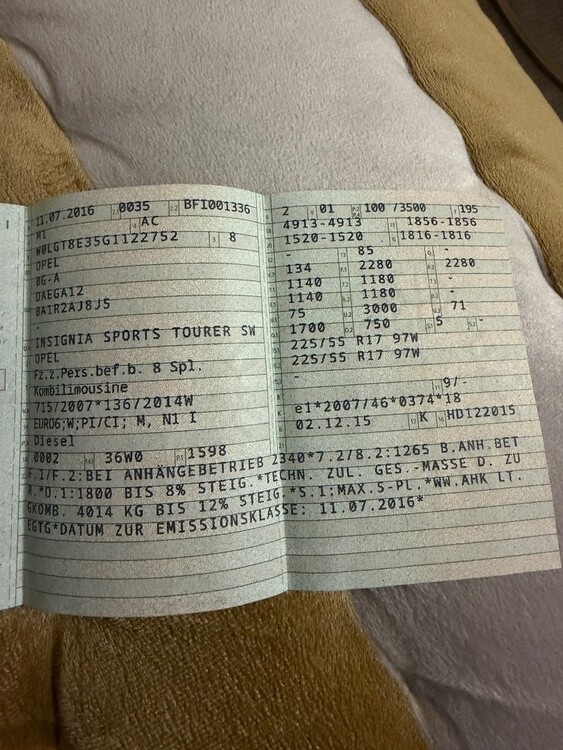 11.07.2016 0035 BFI001336
M1 AC
W0LGT8E35G1122752 8
OPEL
0G-A
DAEGA12
BA1R2AJ8JS
-
INSIGNIA SPORTS TOURER SW
OPEL
Fz.z.Pers.bef.b. 8 Spl.
Kombilimousine
715/2007*136/2014W
EURO6;W;PI/CI; M, N1 I
Diesel
0002 36W0 1598
2 01 100 /3500 195
4913-4913 1856-1856
1520-1520 1816-1816
- 85 -
134 2280 2280
1140 1180 -
1140 1180 -
75 3000 71
1700 750 5 -
225/55 R17 97W
225/55 R17 97W
-
9/-
e1*2007/46*0374*18
02.12.15 K HD122015
F.1/F.2:BEI ANHÄNGEBETRIEB 2340*7.2/8.2:1265 B.ANH.BET
R.*O.1:1800 BIS 8% STEIG.*TECHN. ZUL. GES.-MASSE D. ZU
GKOMB. 4014 KG BIS 12% STEIG.*S.1:MAX.5-PL.*WW.AHK LT.
EGTG*DATUM ZUR EMISSIONSKLASSE: 11.07.2016*